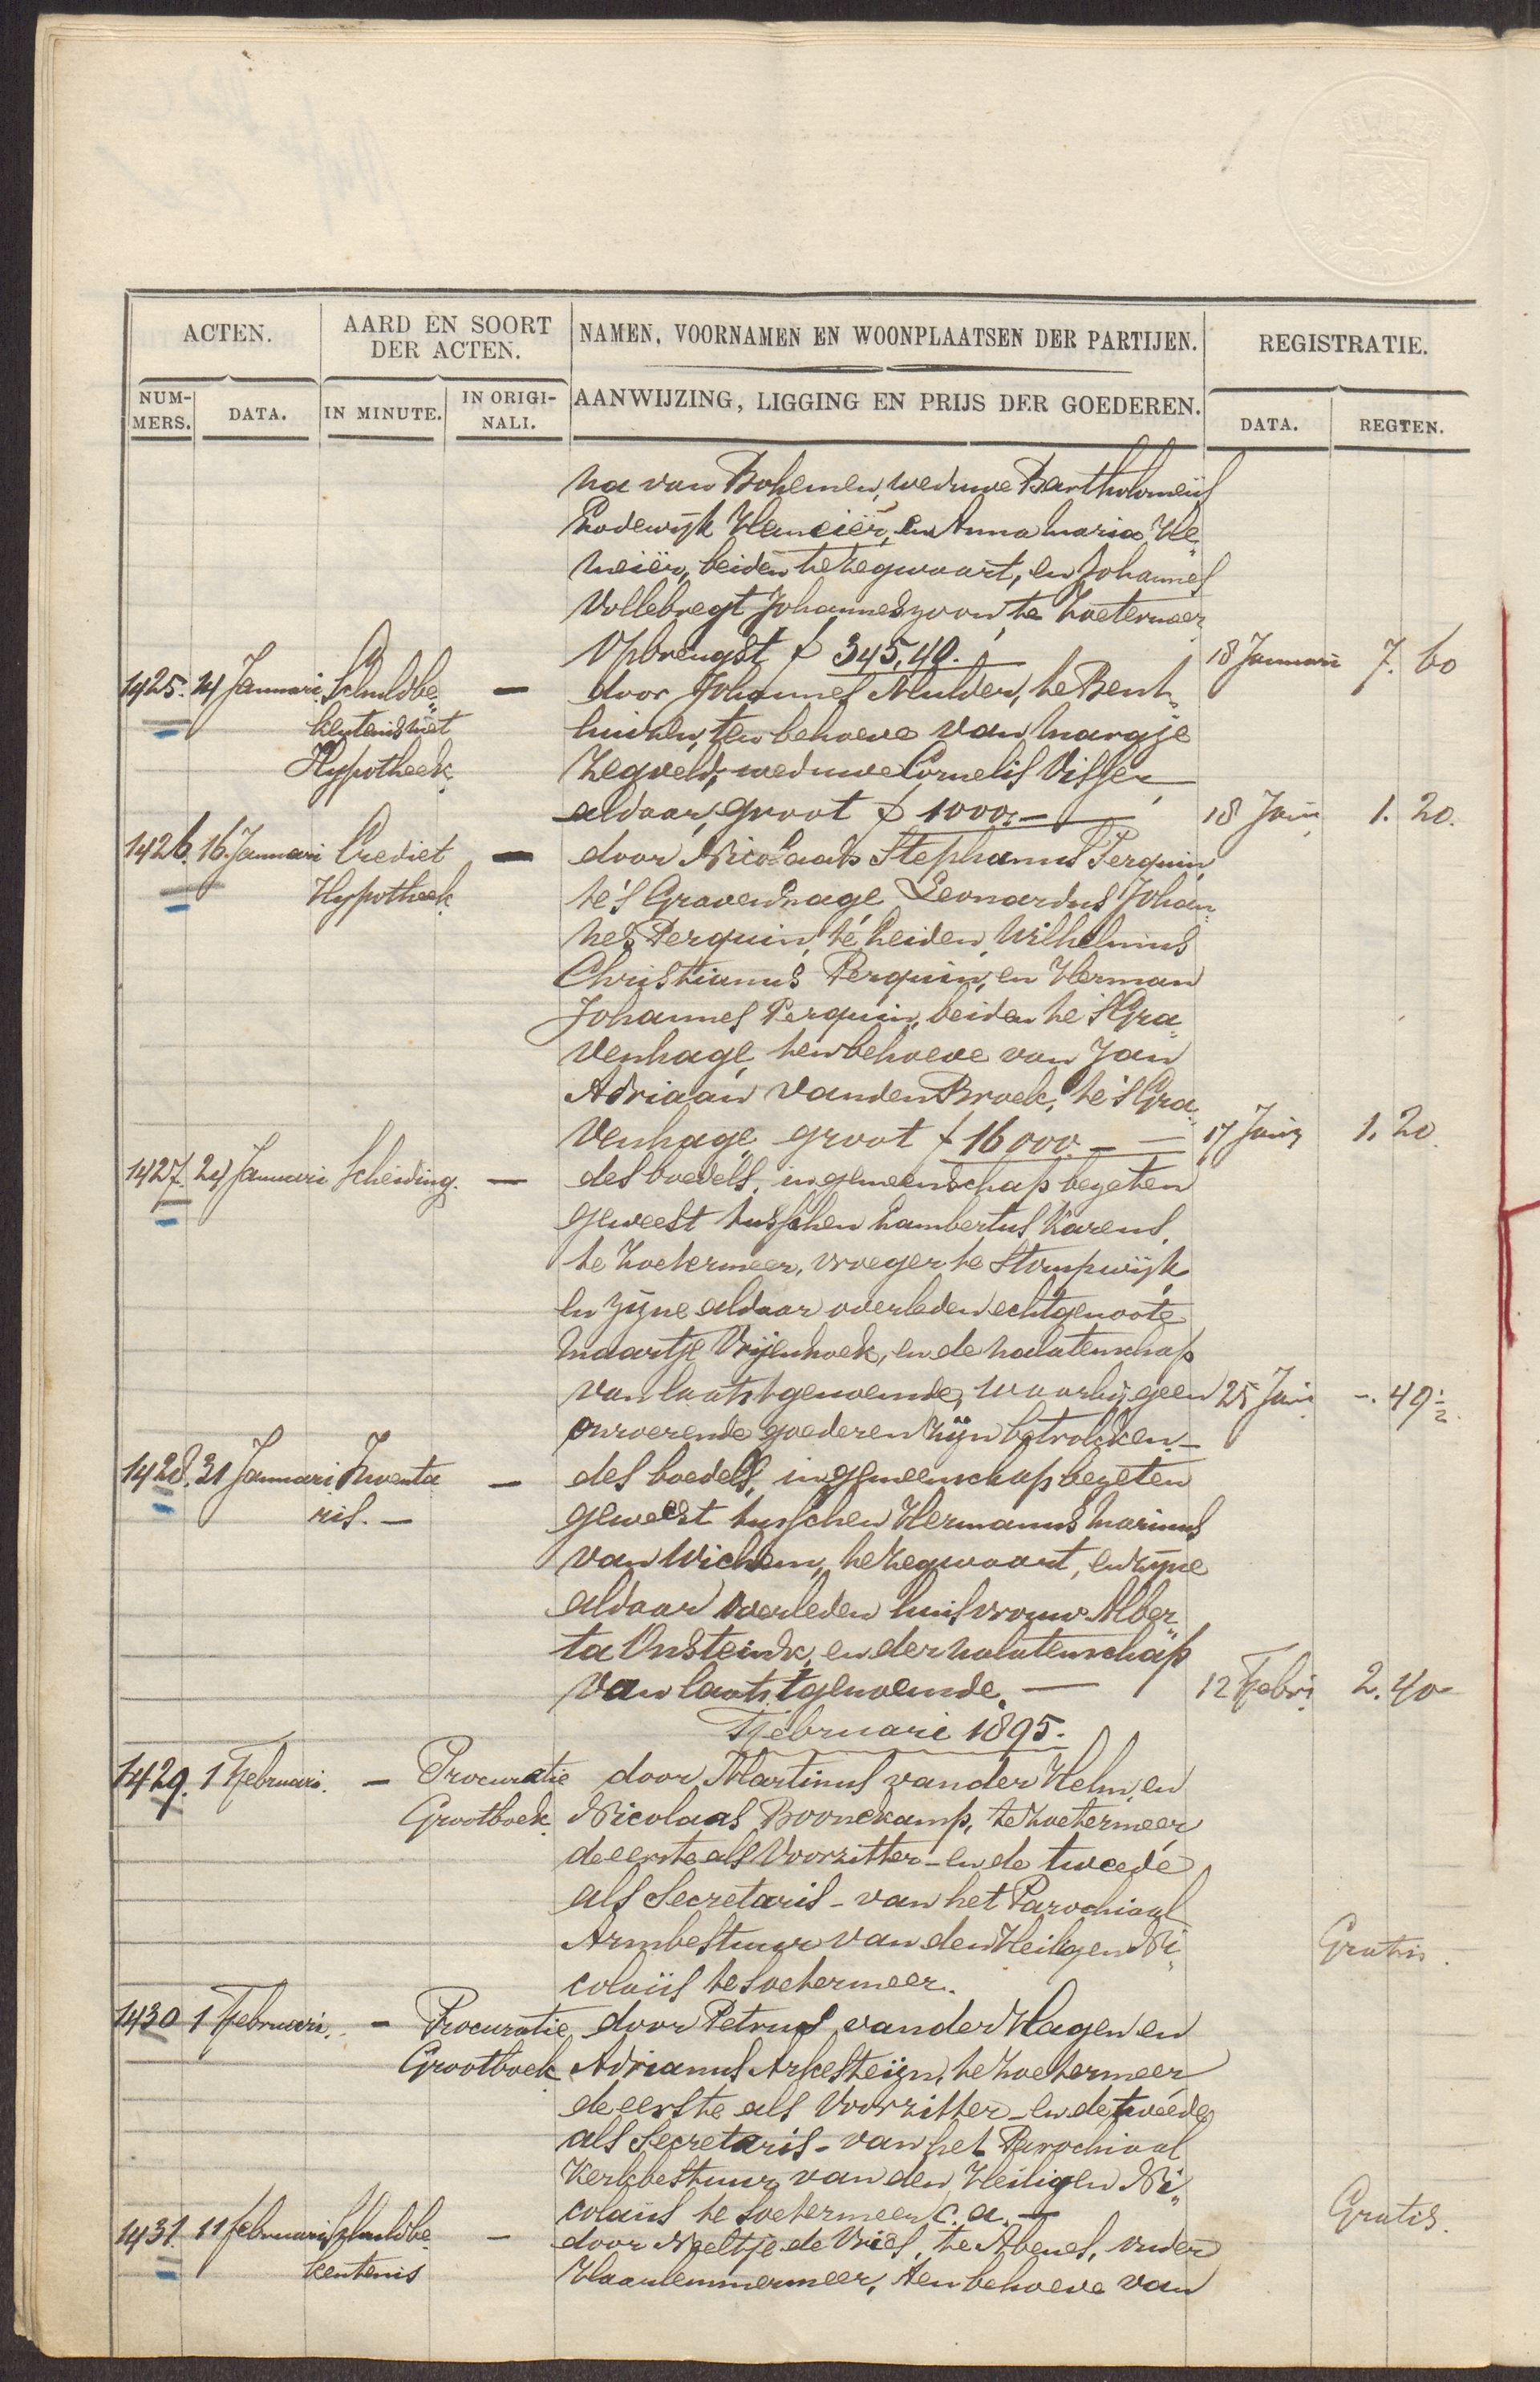 ACTEN.
AARD EN SOORT
DER ACTEN.
NAMEN, VOORNAMEN EN WOONPLAATSEN DER PARTIJEN.
REGISTRATIE.
NUM-
MERS.
DATA.
IN MINUTE.
IN ORIGI-
NALI.
AANWIJZING, LIGGING EN PRIJS DER GOEDEREN.
DATA.
REGTEN.
na van Bohemen, weduwe Bartholomeüs
Lodewijk Hemeiër, en Anna Maria He„
meiër, beiden te Zegwaart, en Johannes
Vollebregt Johanneszoon, te Zoetermeer
Opbrengst f 345,40. 18 Januari 7. 60
1425. 14 Januari. Schuldbe„ — door Johannes Mulder, te Bent„
kentenis met huizen, ten behoeve van Margje
Hypotheek. Zegveld, weduwe Cornelis Visser
aldaar, groot f 1000,- 18 Jani 1. 20.
1426. 16 Januari Crediet — door Nicolaas Stephanus Perquin,
Hypotheek. te 's Gravenhage, Leonardus Johan„
nes Perquin, te Leiden, Wilhelmus
Christianus Perquin, en Herman
Johannes Perquin, beiden te 's Gra„
venhage, ten behoeve van Jan
Adriaan van den Broek, te 's Gra„
venhage, groot f 16000.- — 17 Jani 1. 20.
1427. 24 Januari Scheiding. — des boedels, in gemeenschap bezeten
geweest tusschen Lambertus Karens,
te Zoetermeer, vroeger te Stompwijk
en zijne aldaar overleden echtgenoote
Maartje Vrijenhoek, en de nalatenschap
van laatstgenoemde, waarbij geen 25 Jani -. 49½.
onroerende goederen zijn betrokken. —
1428. 31 Januari Inventa — des boedels, in gemeenschap bezeten
ris. — geweest tusschen Hermanus Marinus
van Wichem, te Zegwaart, en zijne
aldaar overleden huisvrouw Alber„
ta Onsteink, en der nalatenschap
van laatstgenoemde. — 12 Febri. 2. 40
Februari 1895.
1429. 1 Februari. — Procuratie door Martinus van der Helm, en
Grootboek. Nicolaas Boonekamp, te Zoetermeer,
de eerste als Voorzitter - en de tweede
als Secretaris - van het Parochiaal
Armbestuur van den Heiligen Ni„ Gratis.
colaüs te Soetermeer.
1430 1 Februari. — Procuratie door Petrus van der Hagen en
Grootboek. Adrianus Arkesteijn, te Zoetermeer
de eerste als Voorzitter - en de tweede
als Secretaris - van het Parochiaal
Kerkbestuur van den Heiligen Ni„
colaüs te Soetermeer c. a. — Gratis.
1431. 11 Februari Schuldbe„ — door Neeltje de Vries, te Abenes, onder
kentenis Haarlemmermeer, ten behoeve van